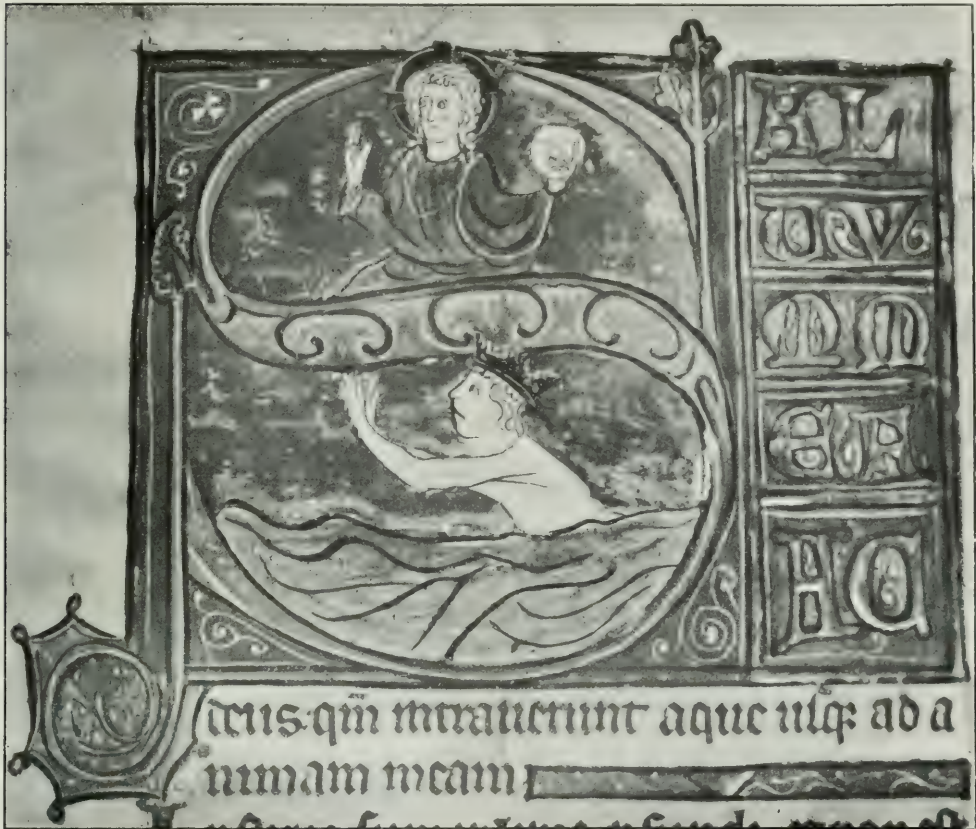 S
AL
VV
MM
EF
AC
deus: qm̄ intrauerunt aque usqꝫ ad a
nimam meam